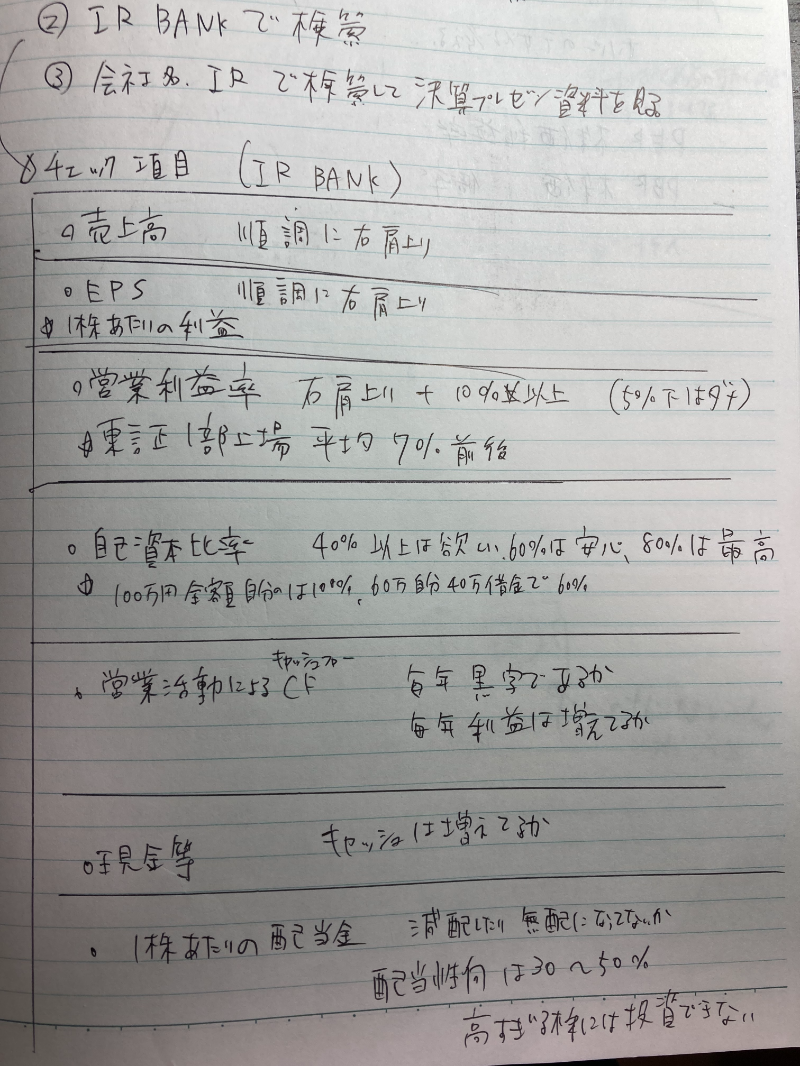 ② IR BANKで検算
③ 会社名.IRで検算して決算プレゼン資料を見る
チェック項目 (IR BANK)
売上高 順調に右肩上り
EPS 順調に右肩上り
1株あたりの利益
営業利益率 右肩上り + 10%以上 (5%下はダメ)
東証1部上場 平均 7%前後
自己資本比率 40%以上は欲しい、60%は安心、80%は最高
100万円全額自分のは100%、60万自分40万借金で60%
キャッシュフロー
営業活動によるCF 毎年黒字であるか
毎年利益は増えてるか
現金等 キャッシュは増えてるか
1株あたりの配当金 減配したり無配になってないか
配当性向は30〜50%
高すぎる株には投資できない